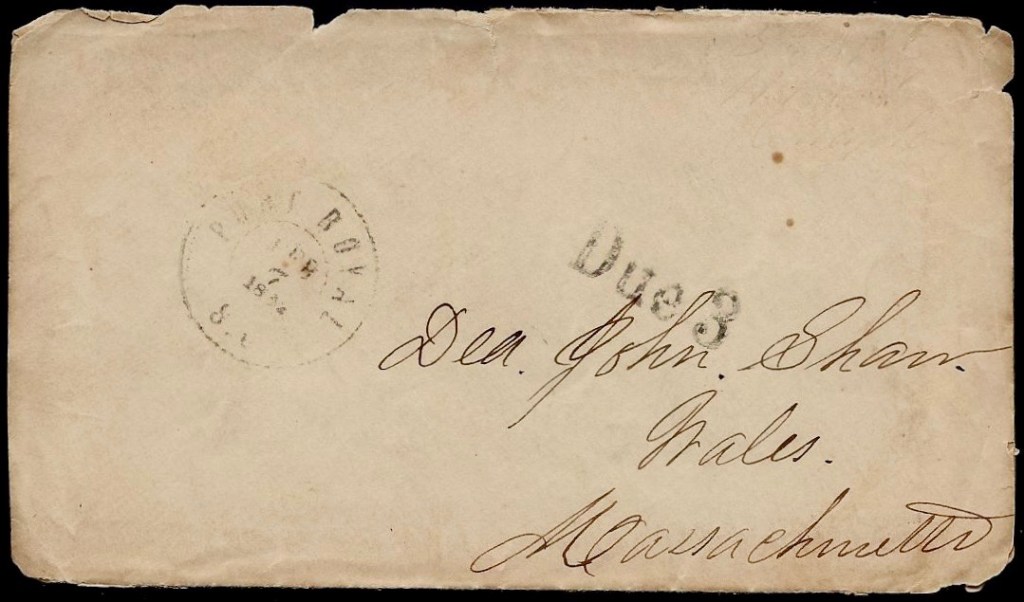 PORT ROYAL
S.
FEB
18
Due 3
Dea. John. Shaw.
Wales.
Massachusetts